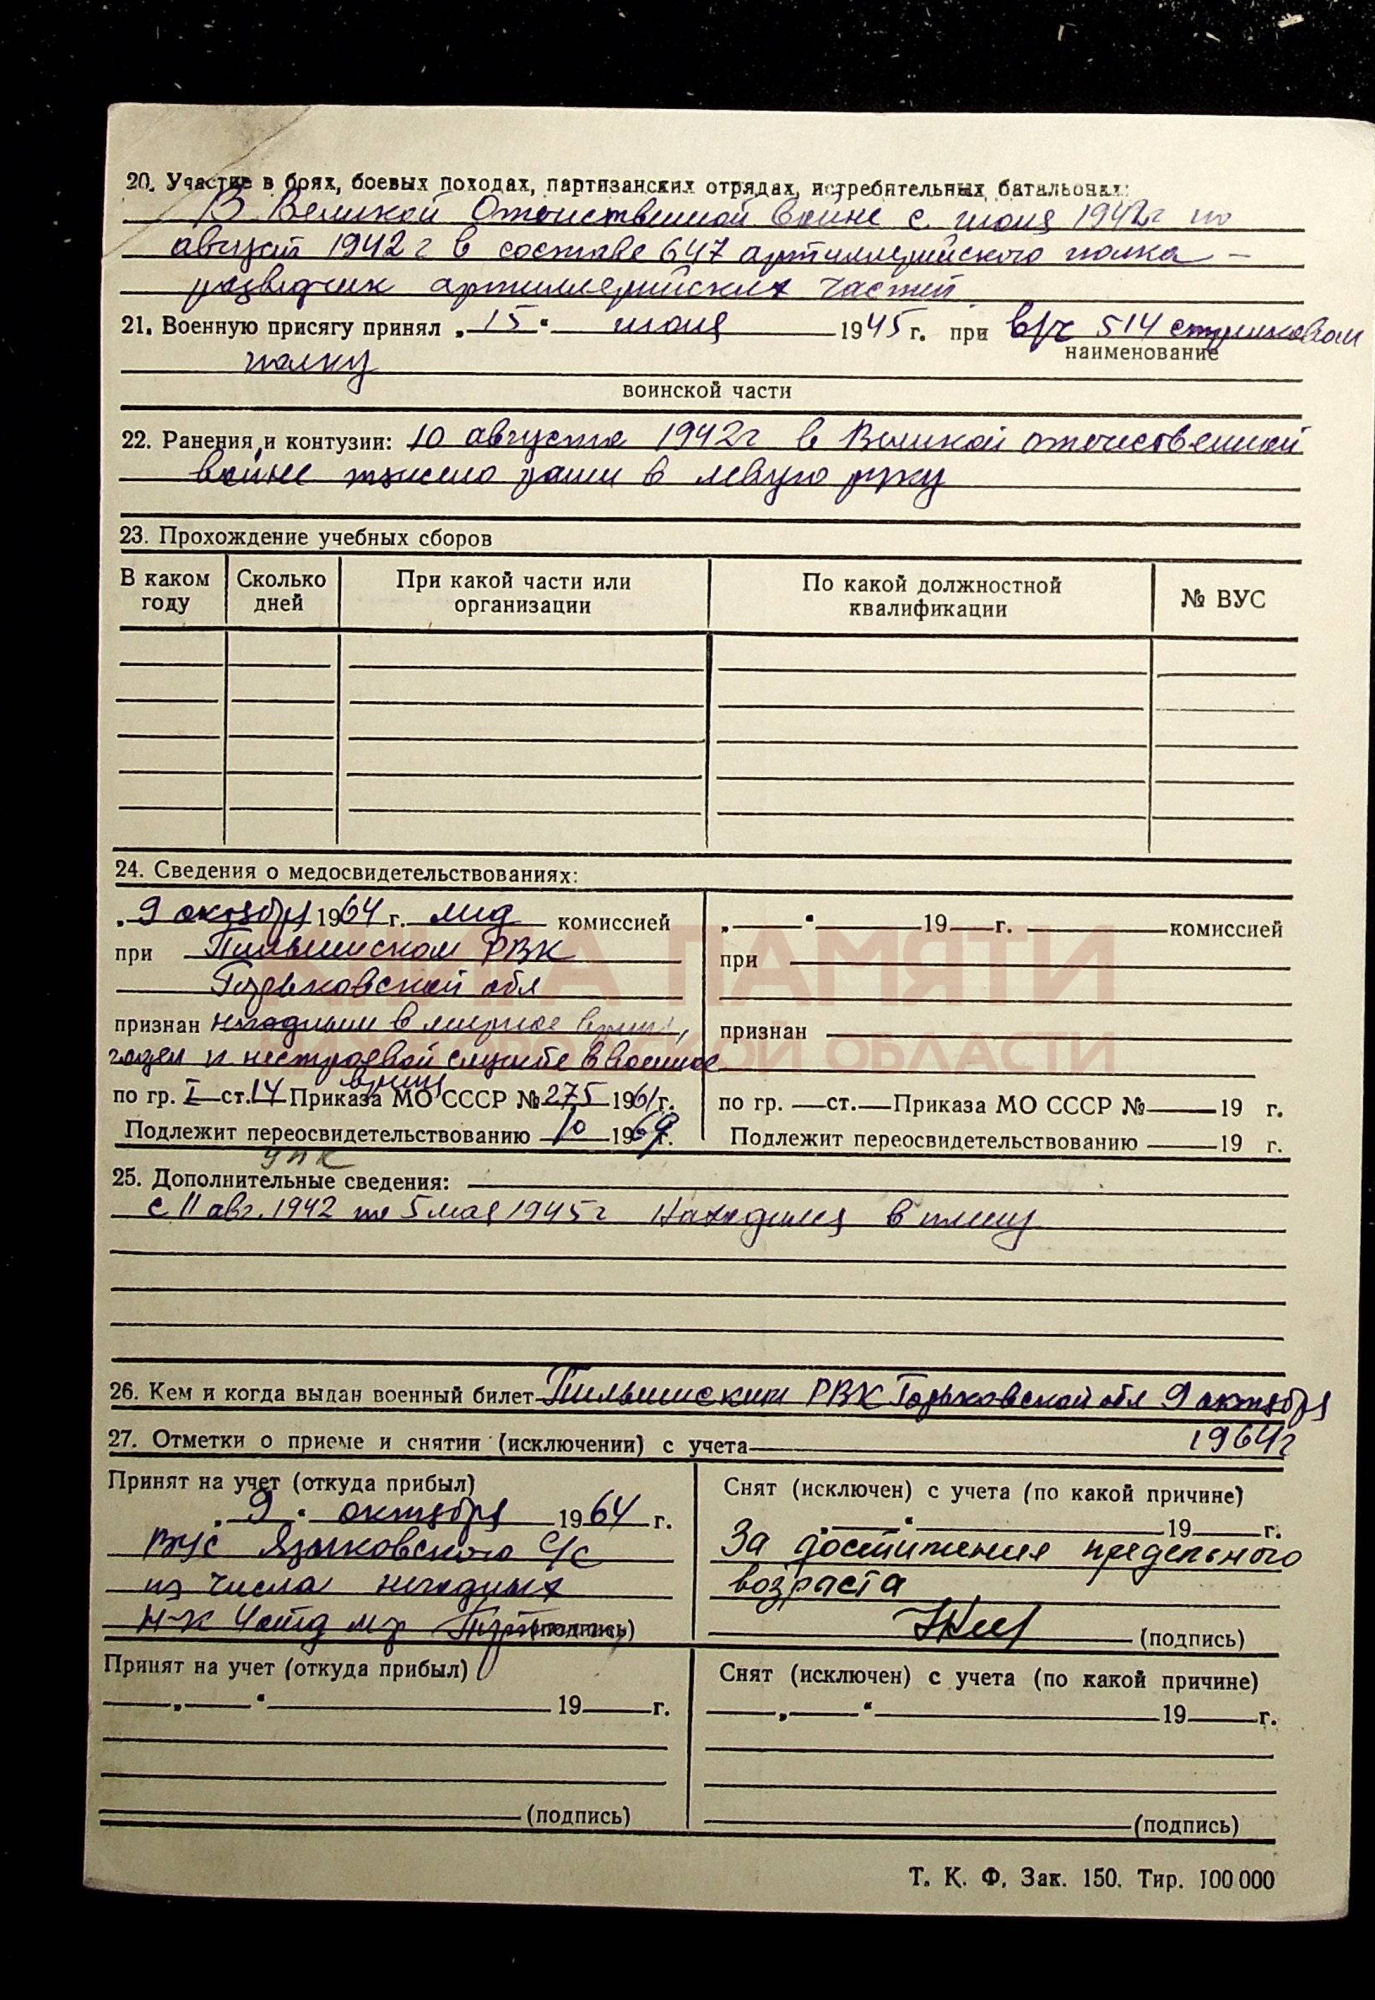 20. Участие в боях, боевых походах, партизанских отрядах, истребительных батальонах:
В Великой Отечественной войне с июня 1942г по
август 1942 г в составе 647 артиллерийского полка –
разведчик артиллерийских частей
21. Военную присягу принял „15“ июня 1945 г. при в/ч 514 стрелковом
наименование
полку
воинской части
22. Ранения и контузии: 10 августа 1942г в Великой отечественной
войне тяжело ранен в левую руку
23. Прохождение учебных сборов
В каком году Сколько дней При какой части или организации По какой должностной квалификации № ВУС
24. Сведения о медосвидетельствованиях:
„9 октября 1964 г. мед комиссией
при Пильнинском РВК
Горьковской обл
признан негодным в мирное время,
годен к нестроевой службе в военное
время
по гр. I ст. 14 Приказа МО СССР № 275 1961 г.
Подлежит переосвидетельствованию 10 1969 г.
„ “ 19 г. комиссией
при
признан
по гр. ст. Приказа МО СССР № 19 г.
Подлежит переосвидетельствованию 19 г.
КНИГА ПАМЯТИ
НИЖЕГОРОДСКОЙ ОБЛАСТИ
упк
25. Дополнительные сведения:
с 11 авг. 1942 по 5 мая 1945 г Находился в плену
26. Кем и когда выдан военный билет Пильнинским РВК Горьковской обл 9 октября
1964г
27. Отметки о приеме и снятии (исключении) с учета
Принят на учет (откуда прибыл)
„9“ октября 1964 г.
ВУС Языковского С/С
из числа негодных
Н-к 4 отд м-р (подпись)
Снят (исключен) с учета (по какой причине)
„ “ 19 г.
За достижения предельного
возраста
(подпись)
Принят на учет (откуда прибыл)
„ “ 19 г.
(подпись)
Снят (исключен) с учета (по какой причине)
„ “ 19 г.
(подпись)
Т. К. Ф. Зак. 150. Тир. 100 000